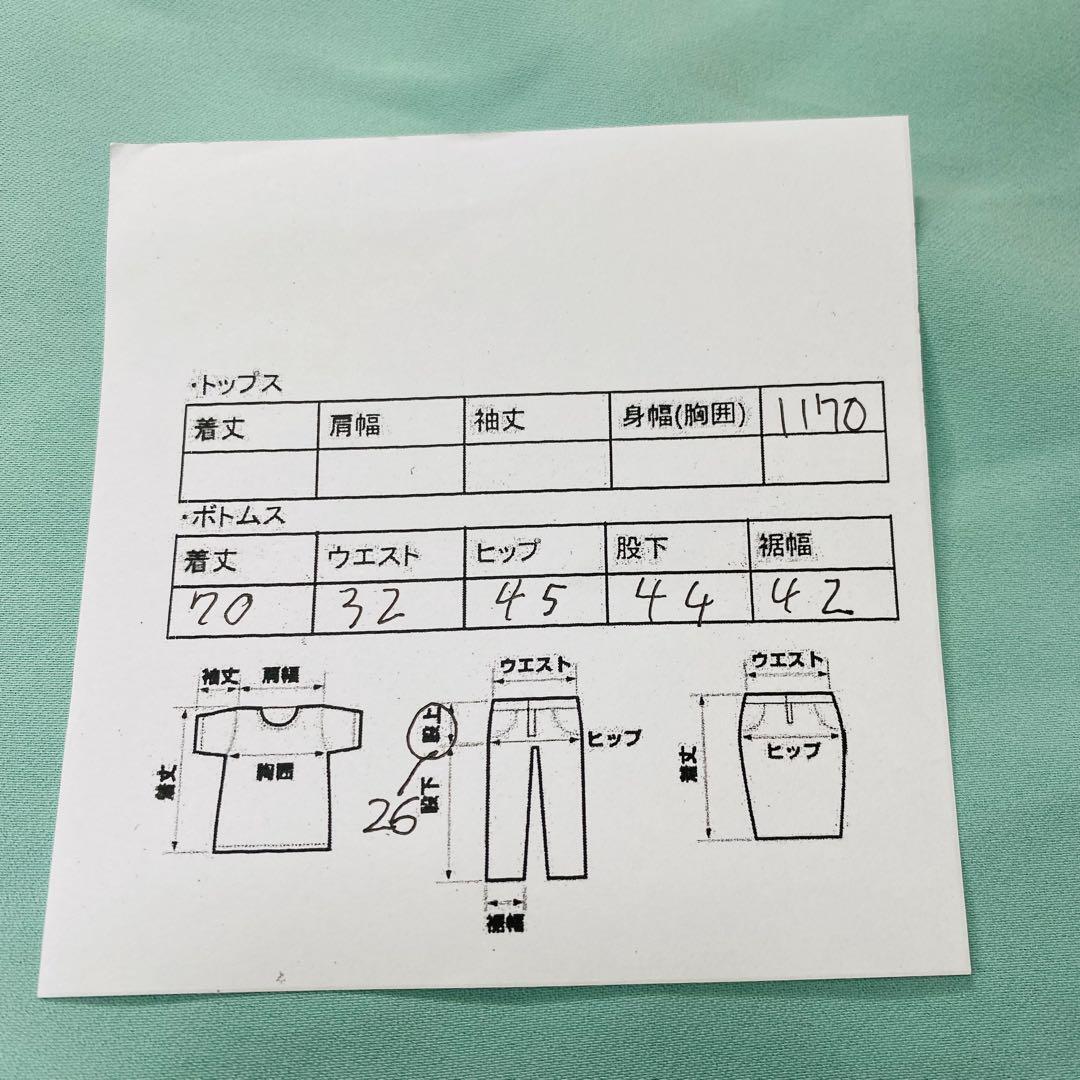 ・トップス
着丈 肩幅 袖丈 身幅(胸囲) 1170
・ボトムス
着丈 ウエスト ヒップ 股下 裾幅
70 32 45 44 42
袖丈 肩幅
着丈
胸囲
ウエスト
股上
ヒップ
股下
26
裾幅
ウエスト
着丈
ヒップ